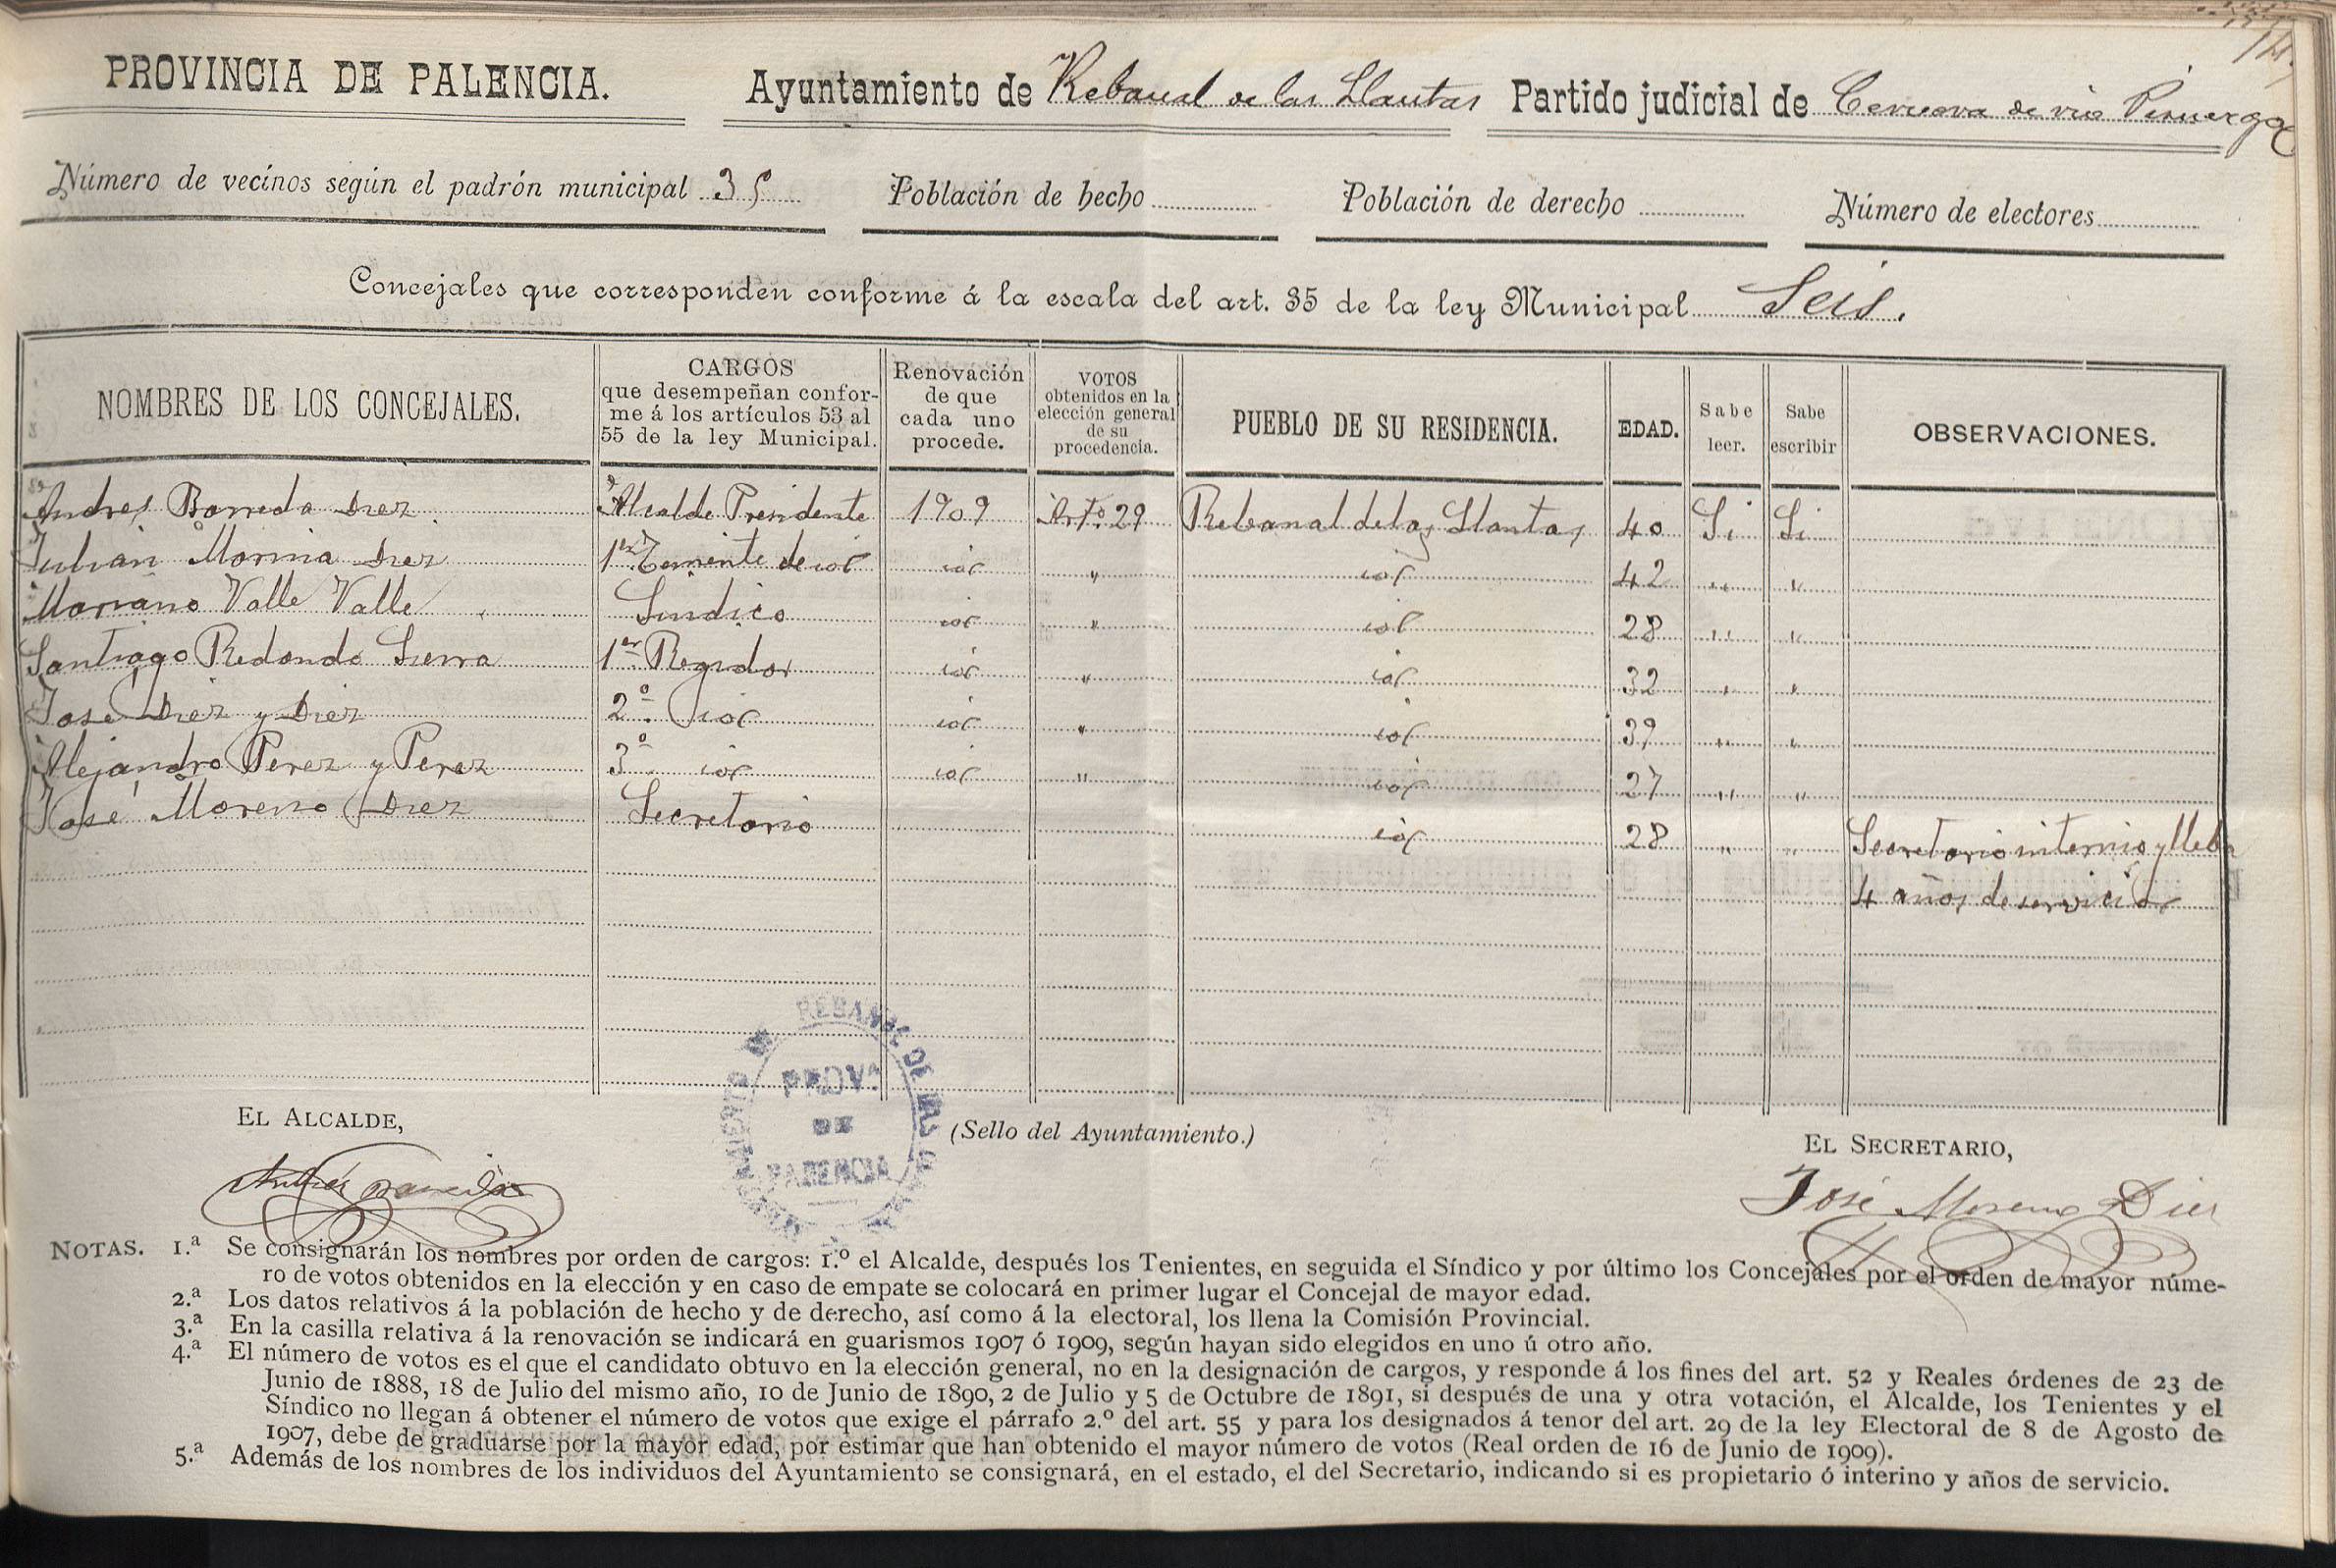 PROVINCIA DE PALENCIA. Ayuntamiento de Rebanal de las Llantas Partido judicial de Cervera de rio Pisuerga
Número de vecinos según el padrón municipal 35 Población de hecho Población de derecho Número de electores
Concejales que corresponden conforme á la escala del art. 35 de la ley Municipal Seis.
NOMBRES DE LOS CONCEJALES.
CARGOS
que desempeñan confor-
me á los artículos 53 al
55 de la ley Municipal.
Renovación
de que
cada uno
procede.
VOTOS
obtenidos en la
elección general
de su
procedencia.
PUEBLO DE SU RESIDENCIA.
EDAD.
Sabe
leer.
Sabe
escribir
OBSERVACIONES.
Andres Barreda Diez Alcalde Presidente 1909 Arto. 29 Rebanal de las Llantas 40 Si Si
Julian Morina Diez 1er Teniente de id id " id 42 " "
Mariano Valle Valle Sindico id " id 28 " "
Santiago Redondo Sierra 1er Regidor id " id 32 " "
Jose Diez y Diez 2º id id " id 39 " "
Alejandro Perez y Perez 3º id id " id 27 " "
José Moreno Diez Secretario id 28 " " Secretario interino y lleba
4 años de servicio
EL ALCALDE,
Andrés Barreda
REBANAL DE LAS
PROVA
DE
PALENCIA
(Sello del Ayuntamiento.)
EL SECRETARIO,
José Moreno Diez
NOTAS. 1.ª Se consignarán los nombres por orden de cargos: 1.º el Alcalde, después los Tenientes, en seguida el Síndico y por último los Concejales por el orden de mayor núme-
ro de votos obtenidos en la elección y en caso de empate se colocará en primer lugar el Concejal de mayor edad.
2.ª Los datos relativos á la población de hecho y de derecho, así como á la electoral, los llena la Comisión Provincial.
3.ª En la casilla relativa á la renovación se indicará en guarismos 1907 ó 1909, según hayan sido elegidos en uno ú otro año.
4.ª El número de votos es el que el candidato obtuvo en la elección general, no en la designación de cargos, y responde á los fines del art. 52 y Reales órdenes de 23 de
Junio de 1888, 18 de Julio del mismo año, 10 de Junio de 1890, 2 de Julio y 5 de Octubre de 1891, si después de una y otra votación, el Alcalde, los Tenientes y el
Síndico no llegan á obtener el número de votos que exige el párrafo 2.º del art. 55 y para los designados á tenor del art. 29 de la ley Electoral de 8 de Agosto de
1907, debe de graduarse por la mayor edad, por estimar que han obtenido el mayor número de votos (Real orden de 16 de Junio de 1909).
5.ª Además de los nombres de los individuos del Ayuntamiento se consignará, en el estado, el del Secretario, indicando si es propietario ó interino y años de servicio.